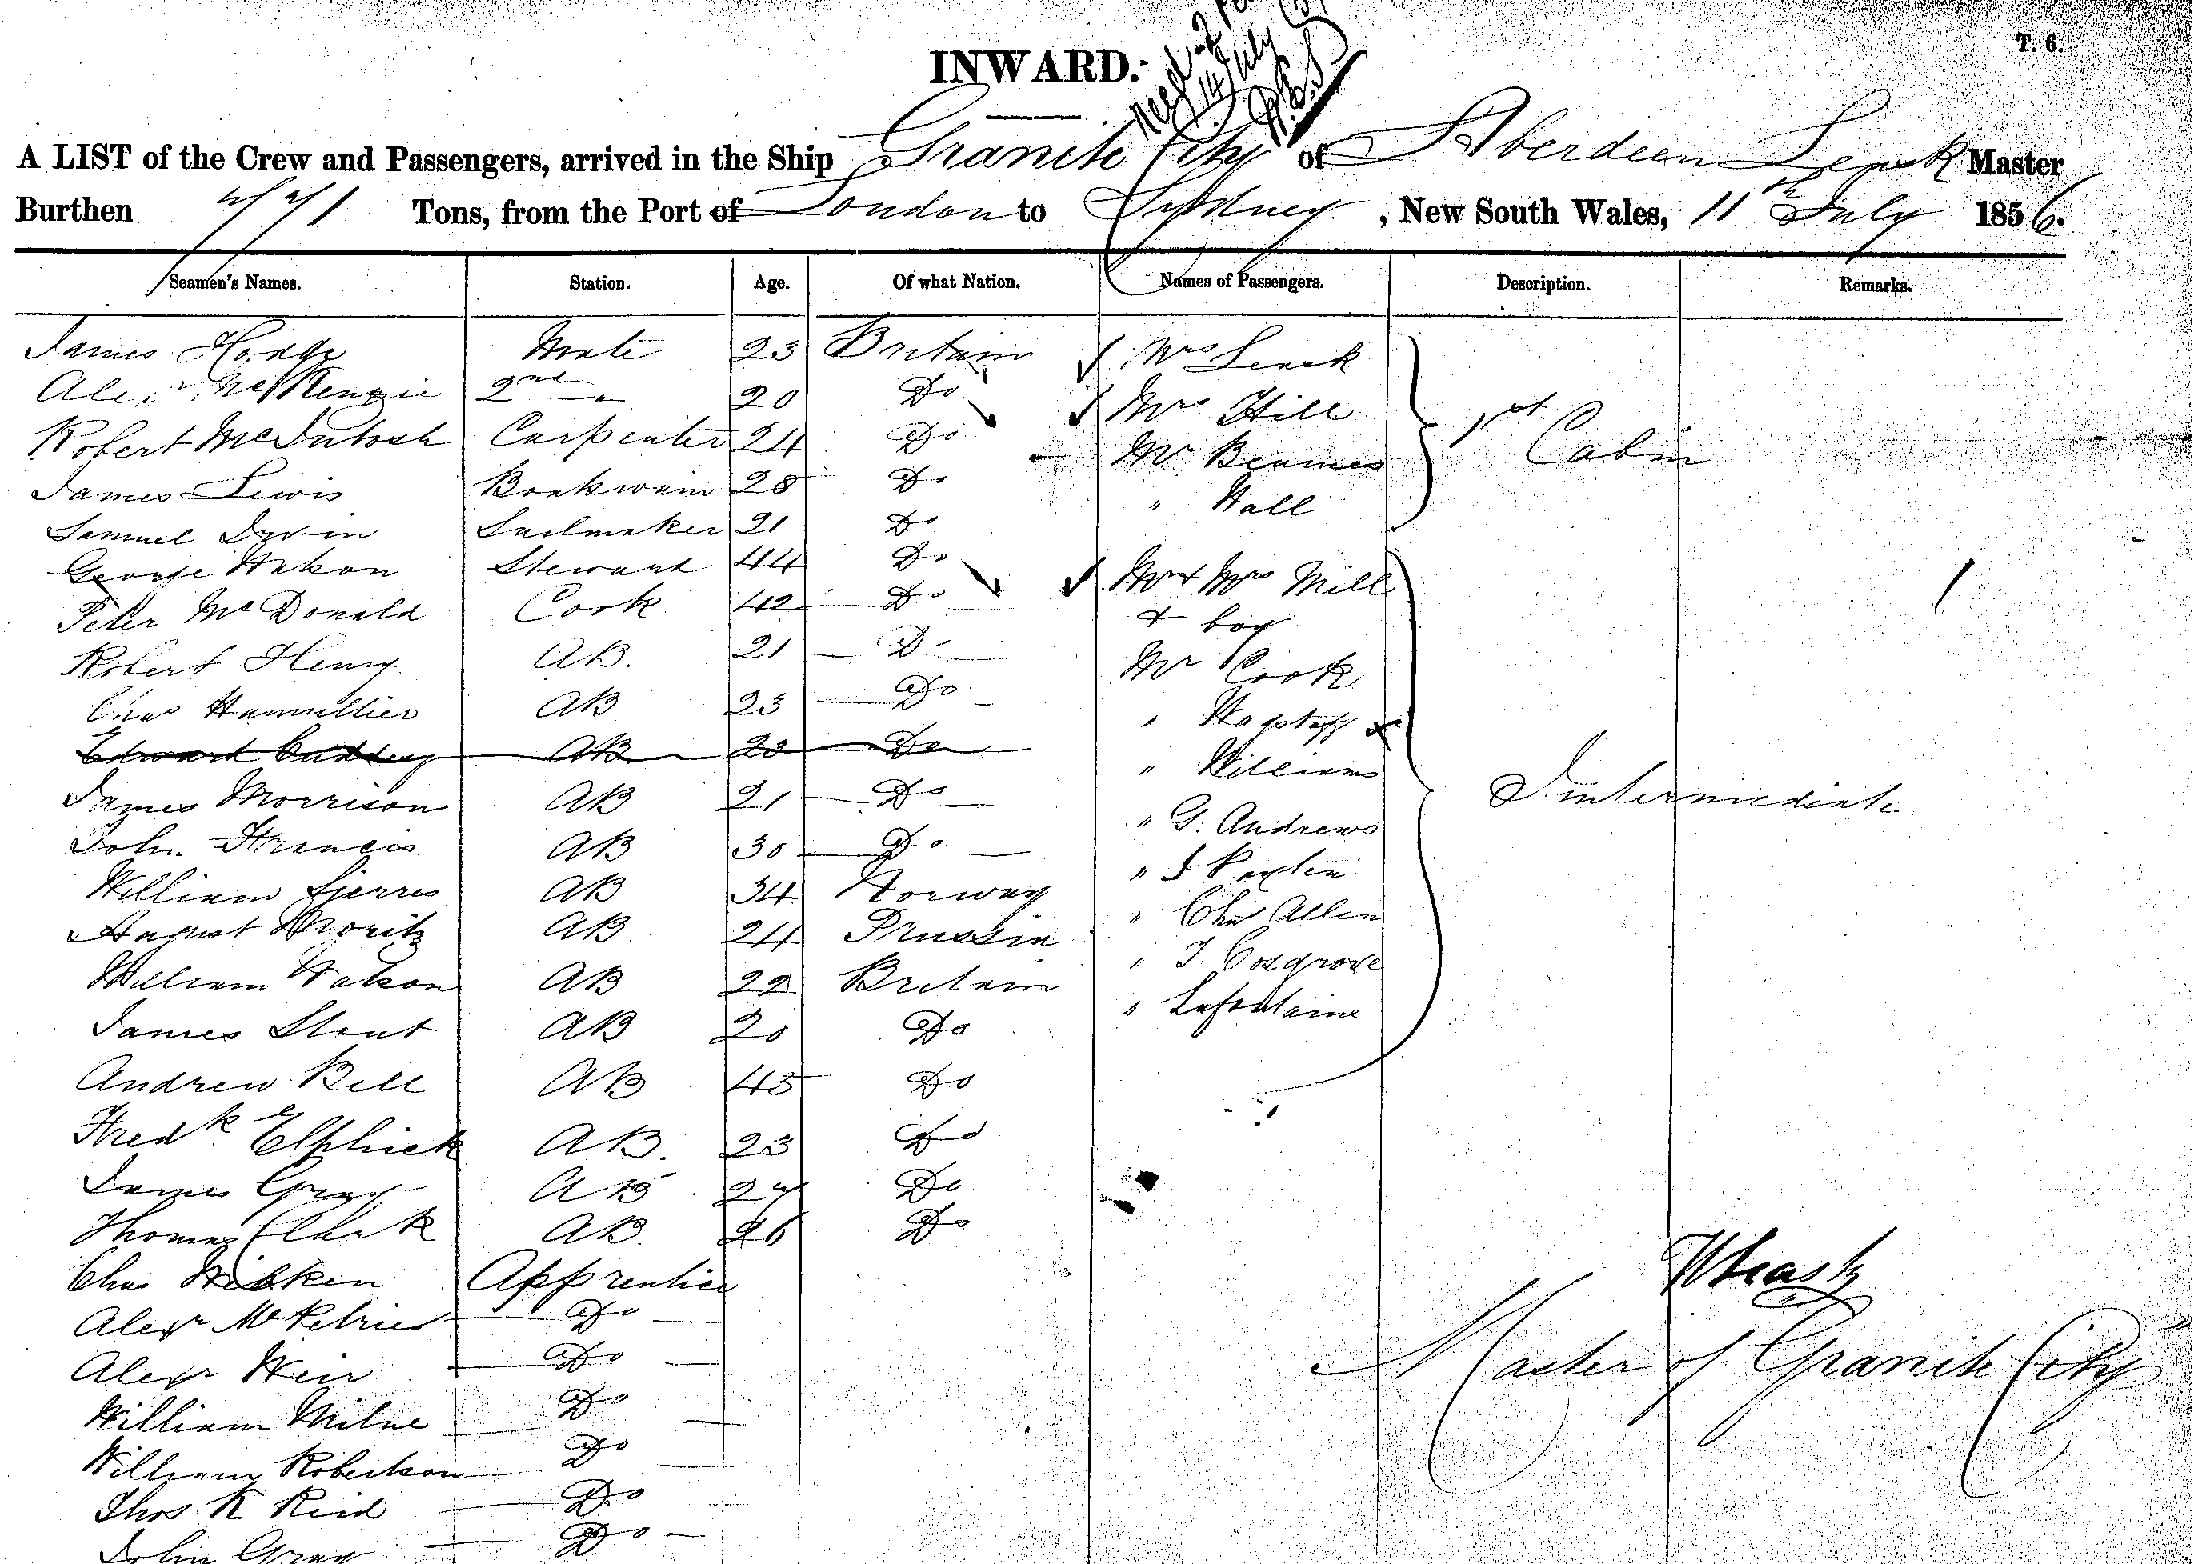 T. 6.
INWARD.
14 July
A LIST of the Crew and Passengers, arrived in the Ship Granite City of Aberdeen Leask Master
Burthen 771 Tons, from the Port of London to Sydney, New South Wales, 11th July 1856.
Seamen's Names. Station. Age. Of what Nation. Names of Passengers. Description. Remarks.
James Hodge Mate 23 Britain Mrs Leask
Alexr McKenzie 2nd " 20 Do Mrs Hill 1st Cabin
Robert McIntosh Carpenter 24 Do Mr Beames
James Lewis Boatswain 28 Do " Wall
Samuel Sailmaker 21 Do
George Watson Steward 44 Do Mr & Mrs Mill
Peter McDonald Cook 42 Do & boy
Robert Henry AB. 21 Do Mr Cook
Chas AB 23 Do " Wagstaff x
Edward AB 20 Do " Williams
James Morrison AB 21 Do " G. Andrews
John Francis AB 30 Do " J
William AB 34 Norway " Chs Allen
August Moritz AB 24 Prussia " J Cosgrove
William Watson AB 22 Britain " Lafontaine
Intermediate
James Stout AB 20 Do
Andrew Bell AB 45 Do
Fredk Elphick AB. 23 Do
James Gray AB 27 Do
Thomas Clark AB. 26 Do
Chas Wilken Apprentice
Alexr McPetrie Do
Alexr Weir Do
William Milne Do
William Robertson Do
Thos R Reid Do
John Gray Do
Leask
Master of Granite City